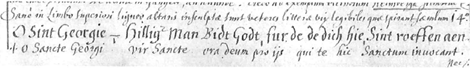 Sano in limbo superiori ligneo altaris insculpta sunt veteres litteræ vix legibiles quæ spirant sæculum 14
O Sint Georgie – Hillige Man Bidt Godt, fur de de dich hie, Sint roeffen aen
+ O Sancte Georgi vir Sancte ora deum pro ijs qui te hic Sanctum invocant.